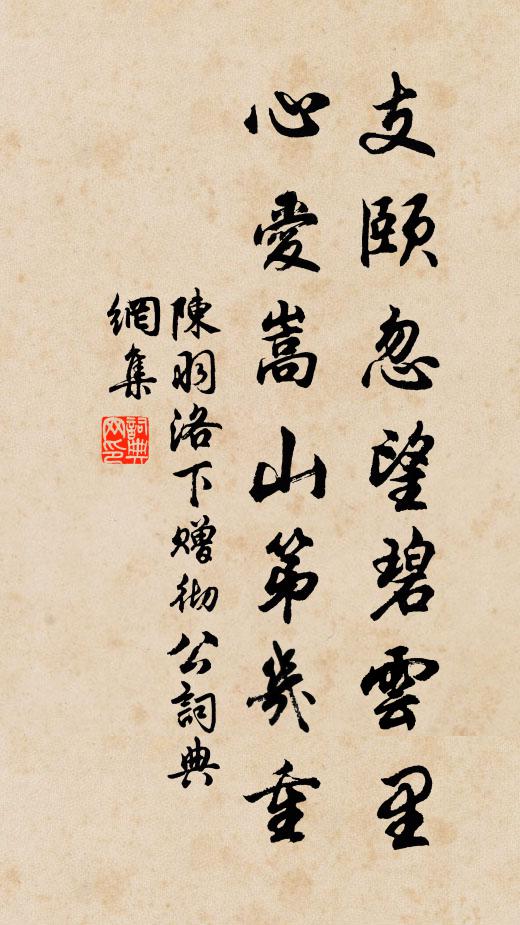 支頤忽望碧雲里
心愛嵩山第幾重
陳羽洛下贈彻公詞典
網集
詞典
网印